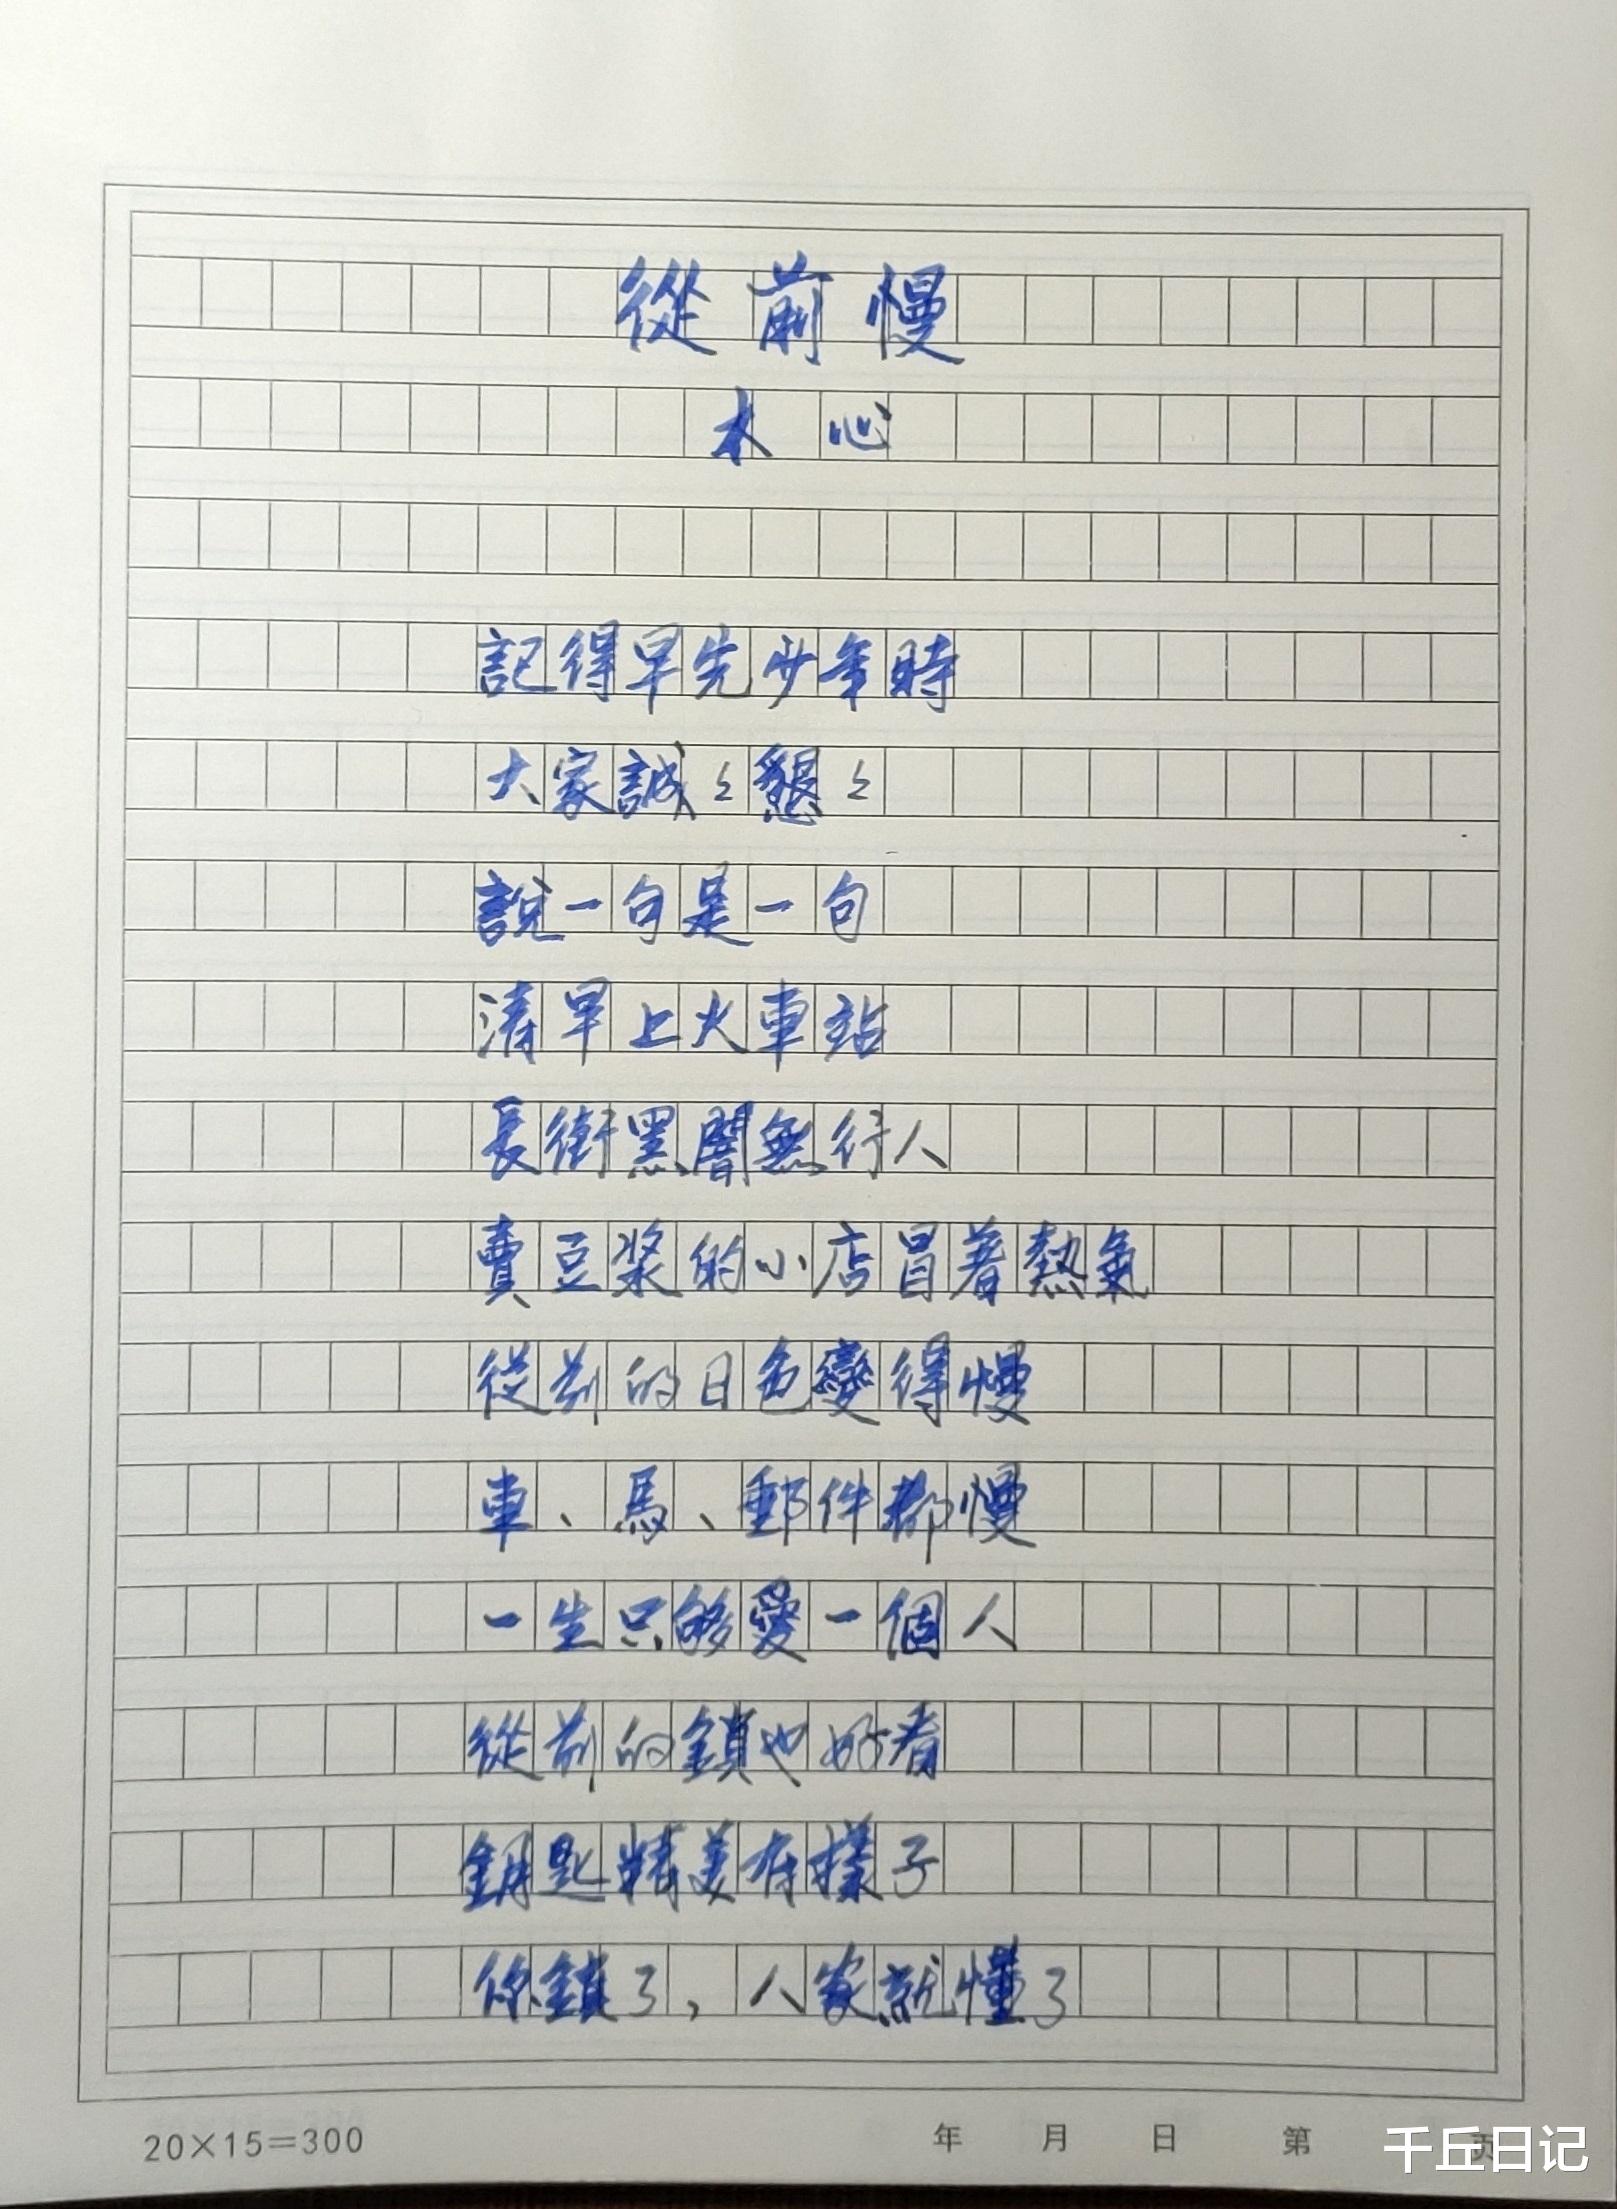 從前慢
木心
記得早先少年時
大家誠々懇々
說一句是一句
清早上火車站
長街黑闇無行人
賣豆漿的小店冒着熱氣
從前的日色變得慢
車、馬、郵件都慢
一生只够愛一個人
從前的鎖也好看
鑰匙精美有樣子
你鎖了，人家就懂了
20×15=300 年 月 日 第 页
千丘日记